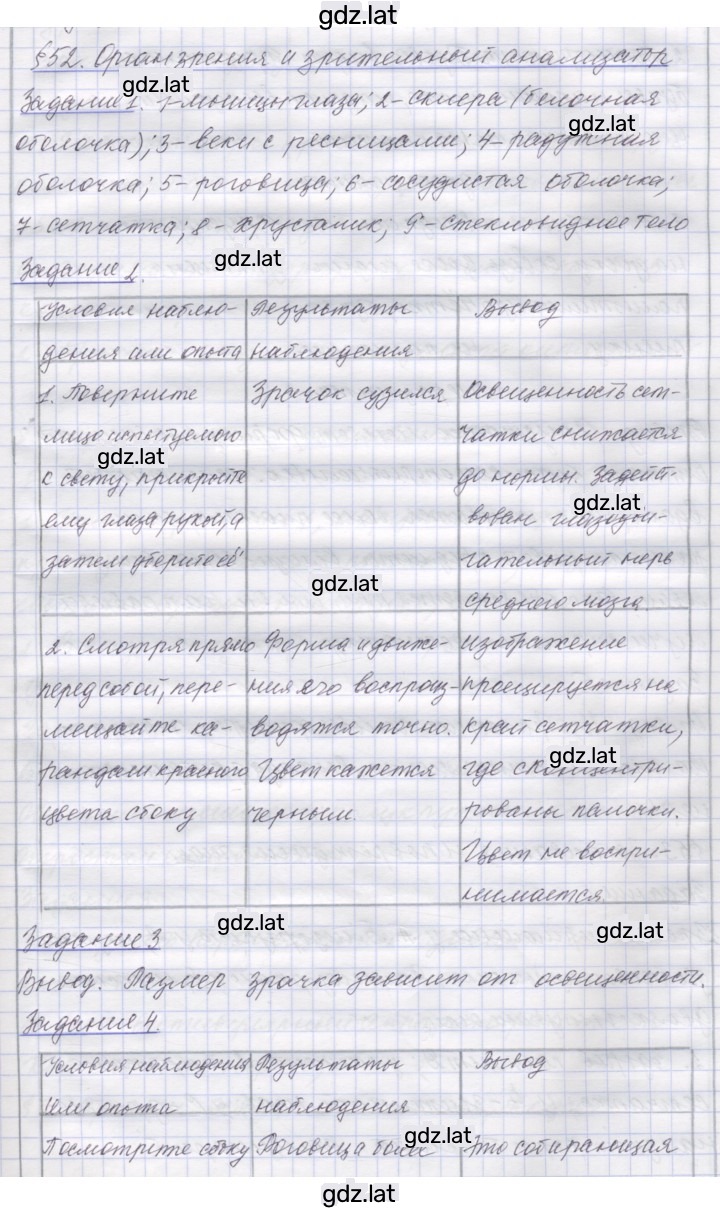 gdz.lat
§52. Орган зрения и зрительный анализатор
gdz.lat
Задание 1. 1-мышцы глаза; 2-склера (белочная
gdz.lat
оболочка); 3-веки с ресницами; 4-радужная
оболочка; 5-роговица; 6-сосудистая оболочка;
7-сетчатка; 8-хрусталик; 9-стекловидное тело
gdz.lat
Задание 2.
Условия наблю-
дения или опыта
Результаты
наблюдения
Вывод
1. Поверните
лицо испытуемого
gdz.lat
к свету, прикройте
ему глаза рукой, а
затем уберите её
Зрачок сузился
gdz.lat
Освещенность сет-
чатки снижается
до нормы. Задейст-
gdz.lat
вован глазодви-
гательный нерв
среднего мозга.
2. Смотря прямо
перед собой, пере-
мещайте ка-
рандаш красного
цвета сбоку
Форма и движе-
ния его воспроиз-
водятся точно.
Цвет кажется
черным.
Изображение
проецируется на
край сетчатки,
gdz.lat
где сконцентри-
рованы палочки.
Цвет не воспри-
нимается.
gdz.lat
gdz.lat
Задание 3
Вывод. Размер зрачка зависит от освещенности.
Задание 4.
Условия наблюдения
или опыта
Результаты
наблюдения
Вывод
Посмотрите сбоку
Роговица более
gdz.lat
Это собирающая
gdz.lat